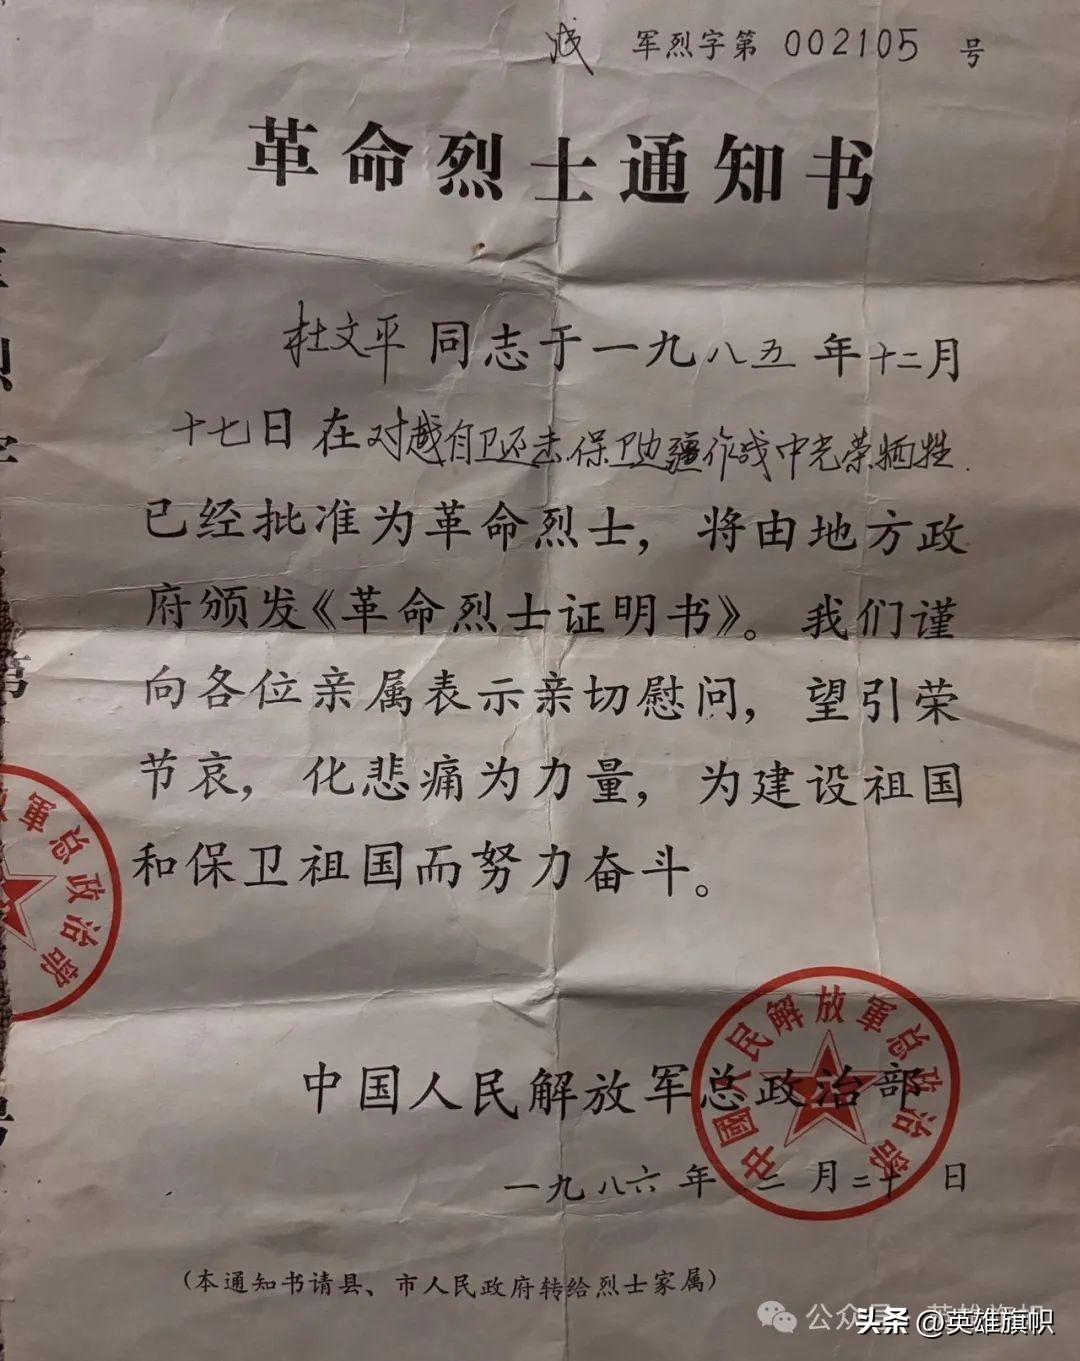 军烈字第 002105 号
革命烈士通知书
杜文平同志于一九八五年十二月
十七日在对越自卫还击保卫边疆作战中光荣牺牲
已经批准为革命烈士，将由地方政
府颁发《革命烈士证明书》。我们谨
向各位亲属表示亲切慰问，望引荣
节哀，化悲痛为力量，为建设祖国
和保卫祖国而努力奋斗。
军总政治部
中国人民解放军总政治部
中國人民解放軍总政治部
一九八六年二月二十日
（本通知书请县、市人民政府转给烈士家属）
公众号
头条 @英雄旗帜